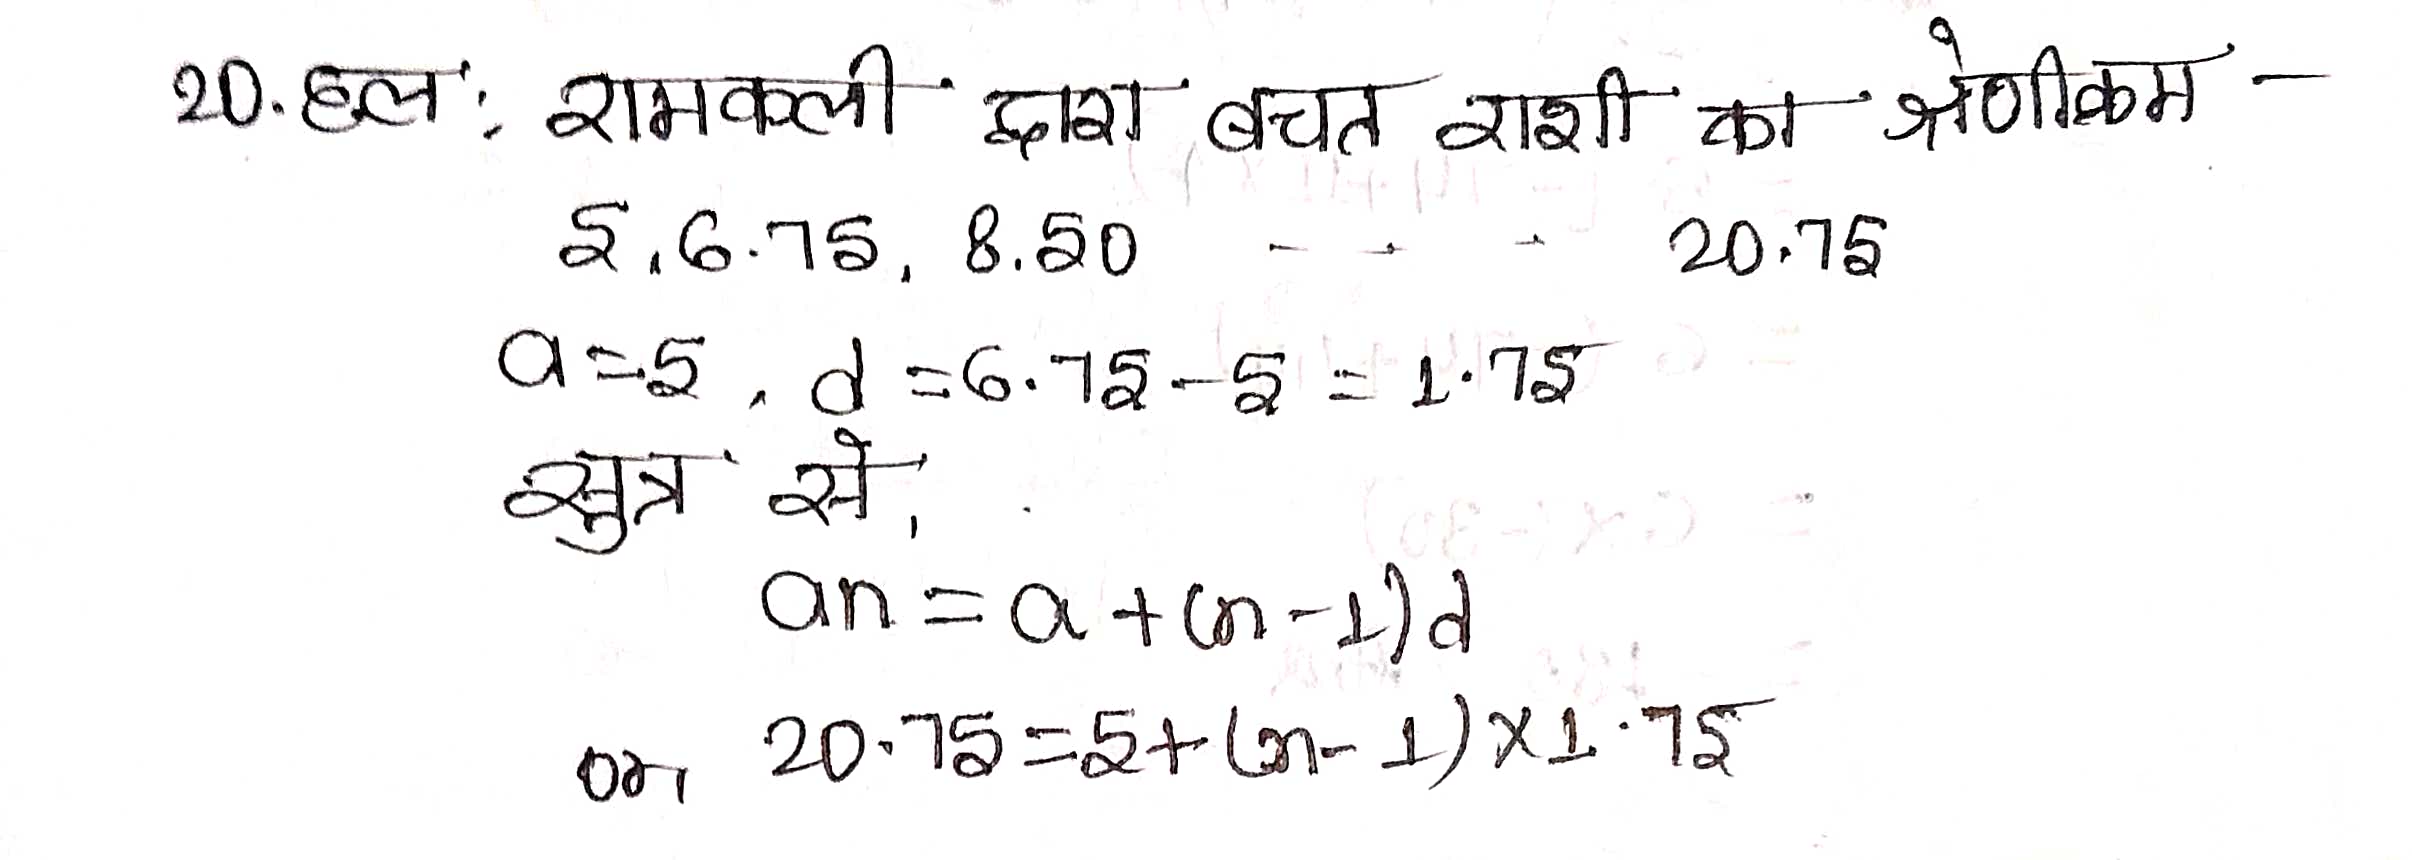 20. हल: रामकली द्वारा बचत राशी का श्रेणीक्रम -
5, 6.75, 8.50 - - - 20.75
a = 5, d = 6.75 - 5 = 1.75
सुत्र से,
an = a + (n - 1) d
or, 20.75 = 5 + (n - 1) × 1.75